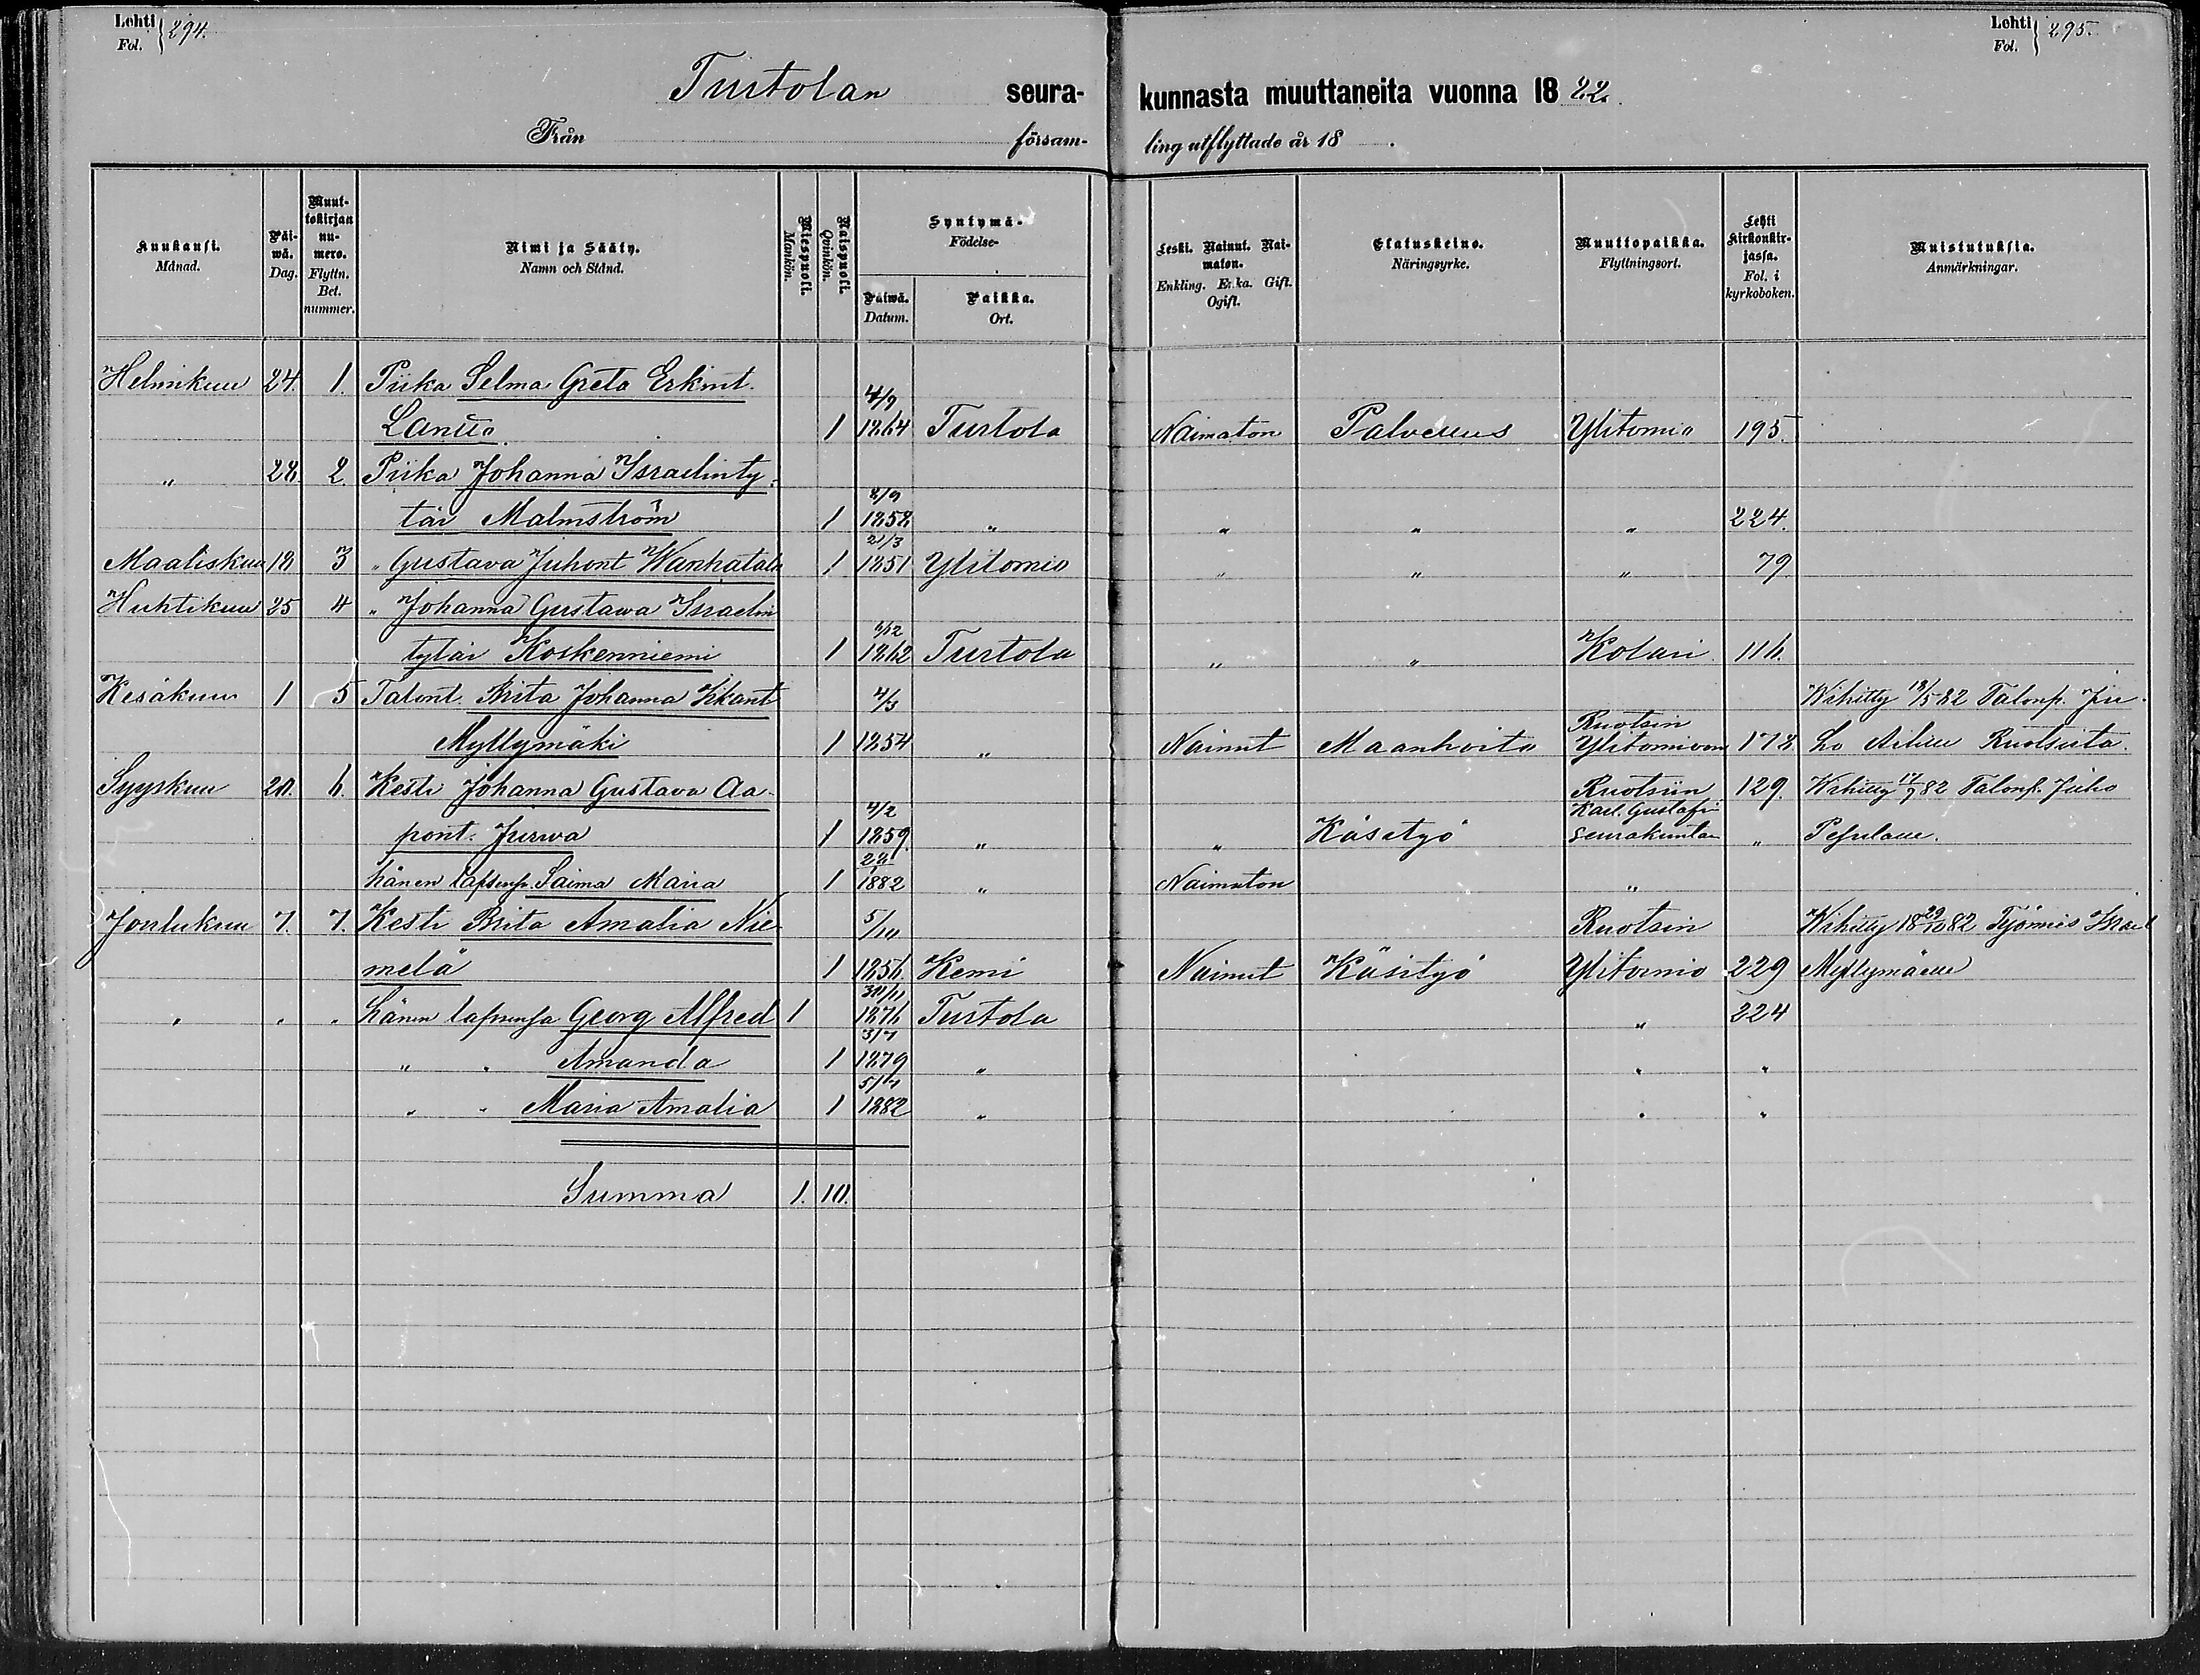 Lehti Fol. 294.
Lehti Fol. 295.
Turtolan seura-kunnasta muuttaneita vuonna 1882.
Från försam-ling utflyttade år 18 .
Kuukausi. Månad.
Päi-wä. Dag.
Muut-tokirjan nu-mero. Flyttn. Bet. nummer.
Nimi ja Sääty. Namn och Stånd.
Miespuoli. Mankön.
Naispuoli. Qvinkön.
Syntymä- Födelse-
Päiwä. Datum.
Paikka. Ort.
Leski. Nainut. Nai-maton. Enkling. Enka. Gift. Ogift.
Elatuskeino. Näringsyrke.
Muuttopaikka. Flyttningsort.
Lehti kirkonkir-jassa. Fol. i kyrkoboken.
Muistutuksia. Anmärkningar.
Helmikuu 24. 1. Piika Selma Greta Erkint. 4/9
1 1864 Turtola Naimaton Palvelus Ylitornio 195.
„ 28. 2. Piika Johanna Israelinty- 8/9
tär Malmström 1 1858 „ „ „ „ 224.
Maaliskuu 18 3 „ Gustava Juhont Wanhatalo 1 21/3 1851 Ylitornio „ „ „ 79.
Huhtikuu 25 4 „ Johanna Gustawa Israelin
tytär Koskenniemi 1 1862 Turtola „ „ Kolari 116.
Kesäkuu 1 5 Talont. Brita Johanna 4/3 Wihitty 18/5 82 Talonp. Ju-
Myllymäki 1 1854 „ Nainut Maanhoito Ruotsin Ylitornioon 178 Ruotsista.
Syyskuu 20. 6. Kesti Johanna Gustava Aa- 4/2 Ruotsiin 129. Wihitty 17/9 82 Talonp. Juho
pont. Jurwa 1 1859 „ „ Käsityö Karl Gustafin seurakuntaan „
hänen lapsensa Saima Maria 1 1882 „ Naimaton „
Joulukuu 7. 7. Kesti Brita Amalia Nie- 5/10 Ruotsin Wihitty 18 29/10 82 Työmies Israel
melä 1 1856 Kemi Nainut Käsityö Ylitornio 229
„ „ „ hänen lapsensa Georg Alfred 1 30/11 1876 Turtola „ 224
„ „ Amanda 1 3/7 1879 „ „ „
„ „ Maria Amalia 1 5/7 1882 „ „ „
Summa 1. 10.